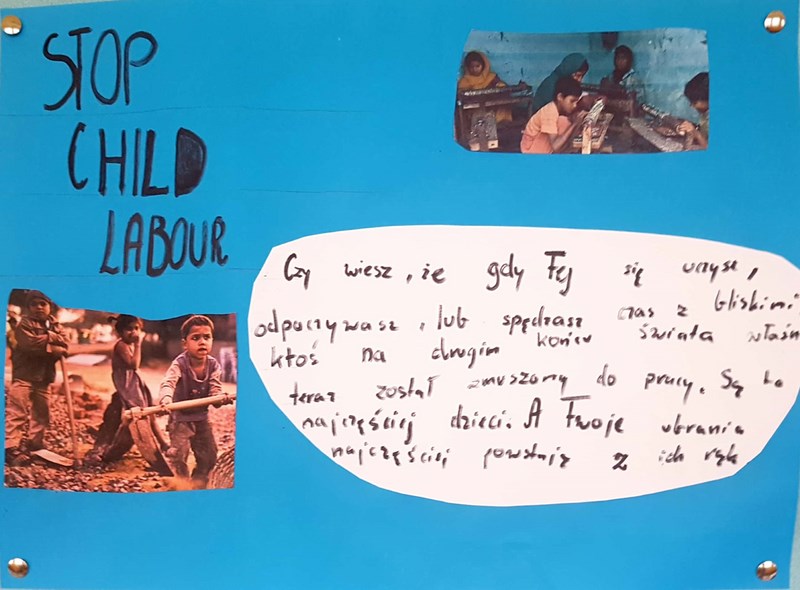 STOP
CHILD
LABOUR
Czy wiesz, że gdy Ty się uczysz,
odpoczywasz, lub spędzasz czas z bliskimi
ktoś na drugim końcu świata właśn
teraz został zmuszony do pracy. Są to
najczęściej dzieci. A Twoje ubrania
najczęściej powstają z ich rąk